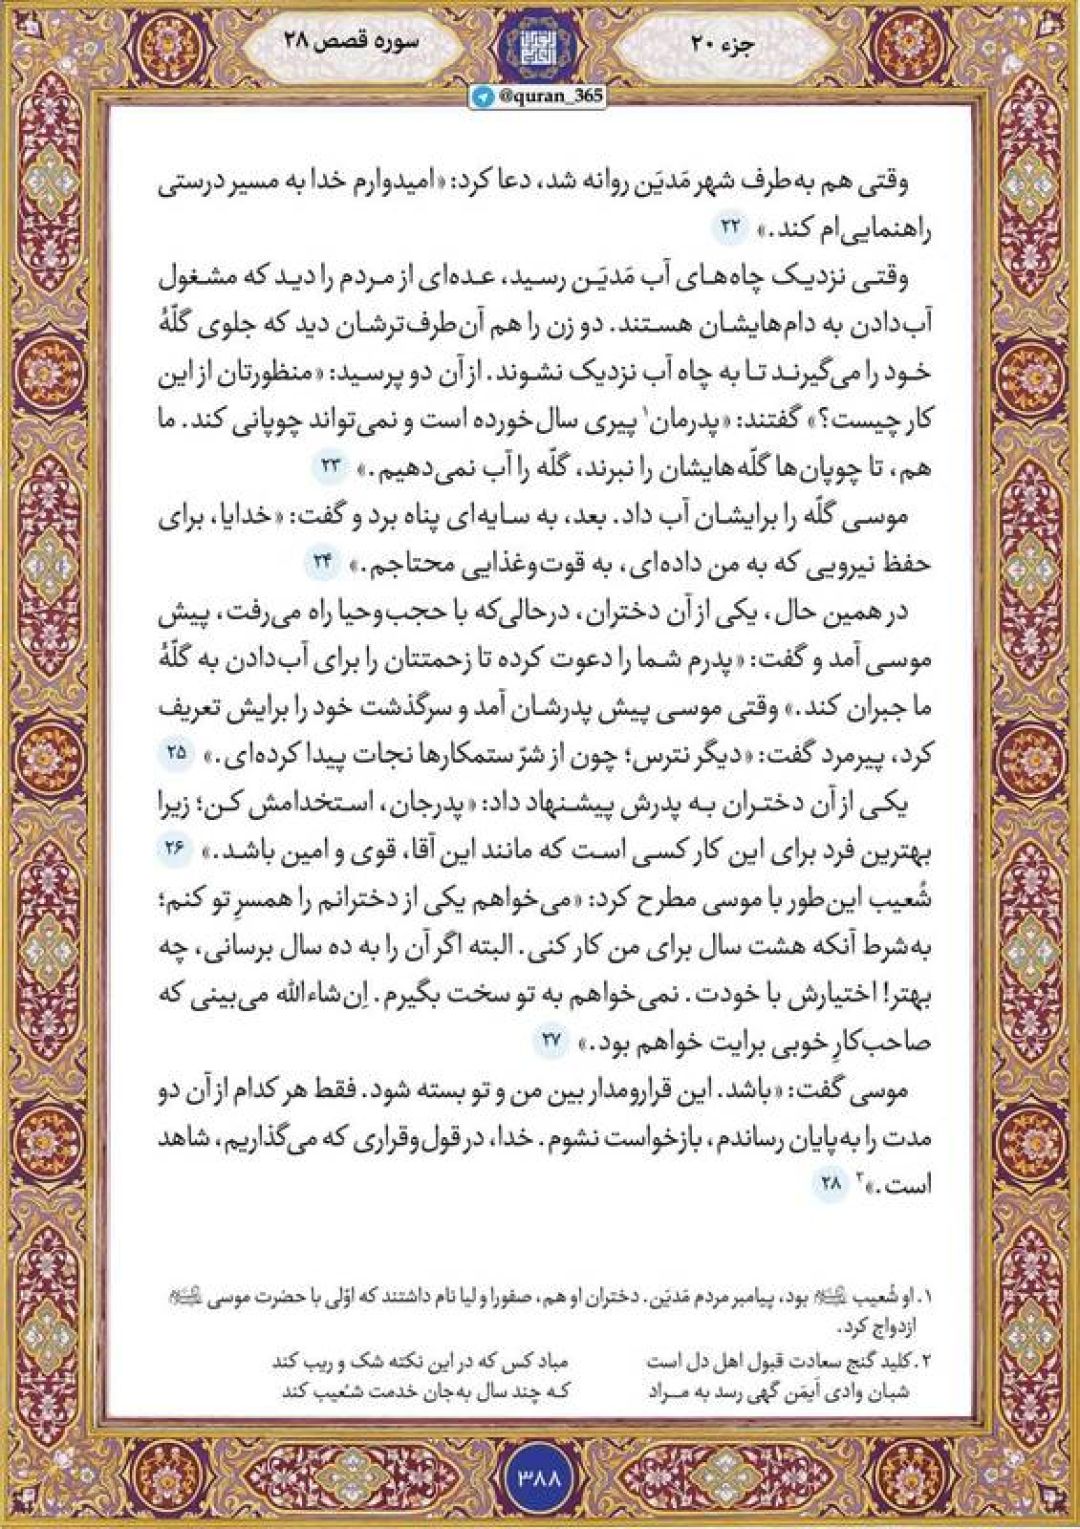 جزء ۲۰
سوره قصص ۲۸
@quran_365
وقتی هم به‌طرف شهر مَدیَن روانه شد، دعا کرد: «امیدوارم خدا به مسیر درستی
راهنمایی‌ام کند.» ۲۲
وقتی نزدیک چاه‌های آب مَدیَن رسید، عده‌ای از مردم را دید که مشغول
آب‌دادن به دام‌هایشان هستند. دو زن را هم آن‌طرف‌ترشان دید که جلوی گلّهٔ
خود را می‌گیرند تا به چاه آب نزدیک نشوند. از آن دو پرسید: «منظورتان از این
کار چیست؟» گفتند: «پدرمان۱ پیری سال‌خورده است و نمی‌تواند چوپانی کند. ما
هم، تا چوپان‌ها گلّه‌هایشان را نبرند، گلّه را آب نمی‌دهیم.» ۲۳
موسی گلّه را برایشان آب داد. بعد، به سایه‌ای پناه برد و گفت: «خدایا، برای
حفظ نیرویی که به من داده‌ای، به قوت‌وغذایی محتاجم.» ۲۴
در همین حال، یکی از آن دختران، درحالی‌که با حجب‌وحیا راه می‌رفت، پیش
موسی آمد و گفت: «پدرم شما را دعوت کرده تا زحمتتان را برای آب‌دادن به گلّهٔ
ما جبران کند.» وقتی موسی پیش پدرشان آمد و سرگذشت خود را برایش تعریف
کرد، پیرمرد گفت: «دیگر نترس؛ چون از شرّ ستمکارها نجات پیدا کرده‌ای.» ۲۵
یکی از آن دختران به پدرش پیشنهاد داد: «پدرجان، استخدامش کن؛ زیرا
بهترین فرد برای این کار کسی است که مانند این آقا، قوی و امین باشد.» ۲۶
شُعیب این‌طور با موسی مطرح کرد: «می‌خواهم یکی از دخترانم را همسرِ تو کنم؛
به‌شرط آنکه هشت سال برای من کار کنی. البته اگر آن را به ده سال برسانی، چه
بهتر! اختیارش با خودت. نمی‌خواهم به تو سخت بگیرم. اِن‌شاءالله می‌بینی که
صاحب‌کارِ خوبی برایت خواهم بود.» ۲۷
موسی گفت: «باشد. این قرارومدار بین من و تو بسته شود. فقط هر کدام از آن دو
مدت را به‌پایان رساندم، بازخواست نشوم. خدا، در قول‌وقراری که می‌گذاریم، شاهد
است.»۲ ۲۸
۱. او شُعیب بود، پیامبر مردم مَدیَن. دختران او هم، صفورا و لیا نام داشتند که اوّلی با حضرت موسی
ازدواج کرد.
۲. کلید گنج سعادت قبول اهل دل است مباد کس که در این نکته شک و ریب کند
شبان وادی اَیمَن گهی رسد به مراد که چند سال به‌جان خدمت شعیب کند
۳۸۸